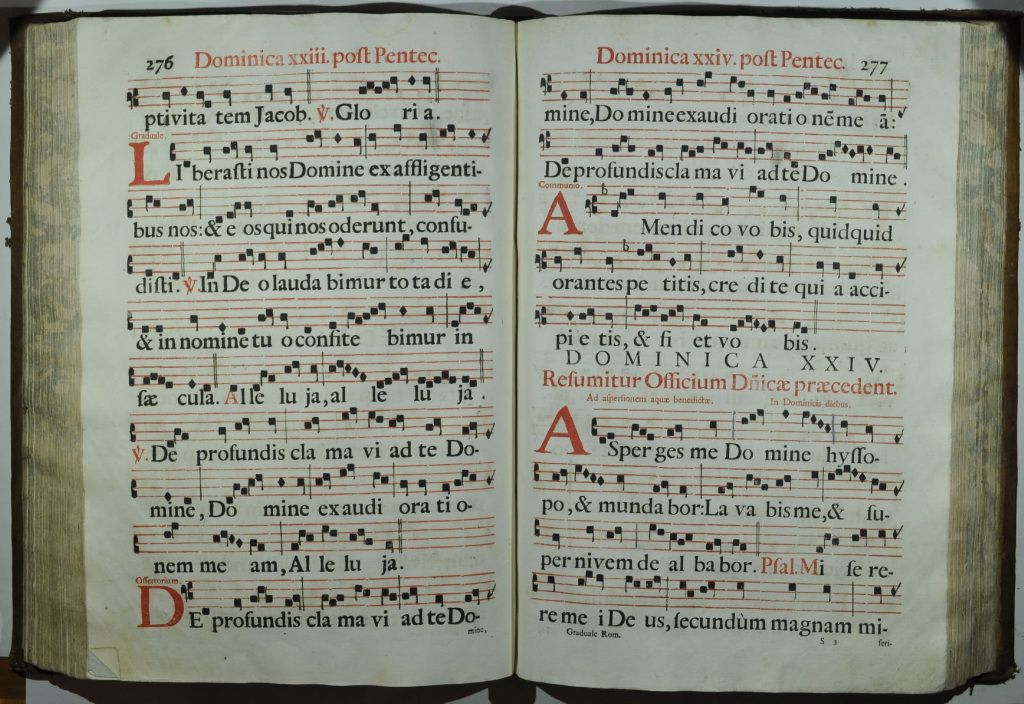 276 Dominica xxiii. poſt Pentec.
ptivita tem Jacob. ℣. Glo ri a.
Graduale.
LI beraſti nos Domine ex affligenti-
bus nos: & e os qui nos oderunt, confu-
diſti. ℣. In De o lauda bimur to ta di e,
& in nomine tu o confite bimur in
ſæ cula. Alle lu ja, al le lu ja.
℣. De profundis cla ma vi ad te Do-
mine, Do mine exaudi ora ti o-
nem me am, Al le lu ja.
Offertorium.
DE profundis cla ma vi ad te Do-
mine,
Dominica xxiv. poſt Pentec. 277
mine, Do mine exaudi orati o nē me ā:
De profundis cla ma vi ad te Do mine.
Communio.
A Men di co vo bis, quidquid
orantes pe titis, cre di te qui a acci-
pi e tis, & fi et vo bis.
DOMINICA XXIV.
Reſumitur Officium Dñicæ præcedent.
Ad aſperſionem aquæ benedictæ. In Dominicis diebus.
A Sper ges me Do mine hyſſo-
po, & munda bor: La va bis me, & ſu-
per nivem de al ba bor. Pſal. Mi ſe re-
re me i De us, ſecundùm magnam mi-
Graduale Rom. S 3 ſeri-